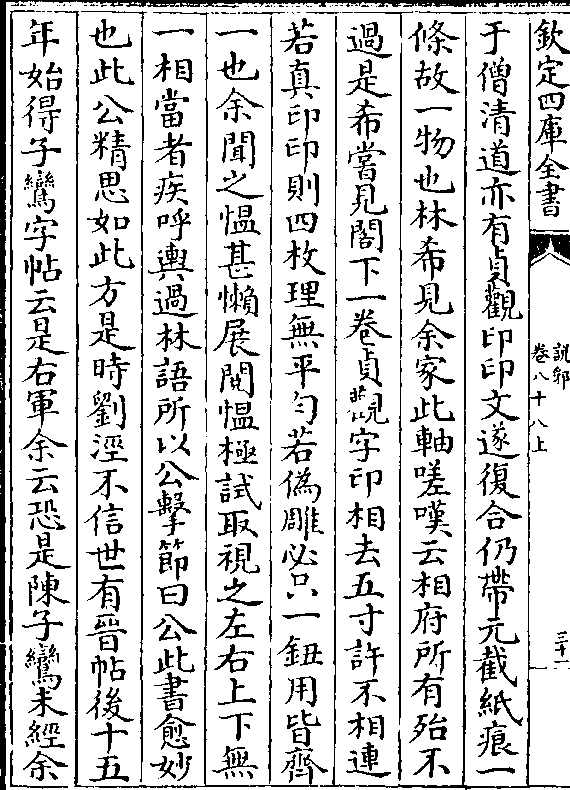 欽定四庫全書
說郛
卷八十八上
三十一
于僧清道亦有貞觀印印文遂復合仍帶元截紙痕一
條故一物也林希見余家此軸嗟嘆云相府所有殆不
過是希嘗見閣下一卷貞觀字印相去五寸許不相連
若真印印則四枚理無平勻若偽雕必只一鈕用皆齊
一也余聞之愠甚懶展閱愠極試取視之左右上下無
一相當者疾呼輿過林語所以公擊節曰公此書愈妙
也此公精思如此方是時劉涇不信世有晉帖後十五
年始得子鸞字帖云是右軍余云恐是陳子鸞未經余